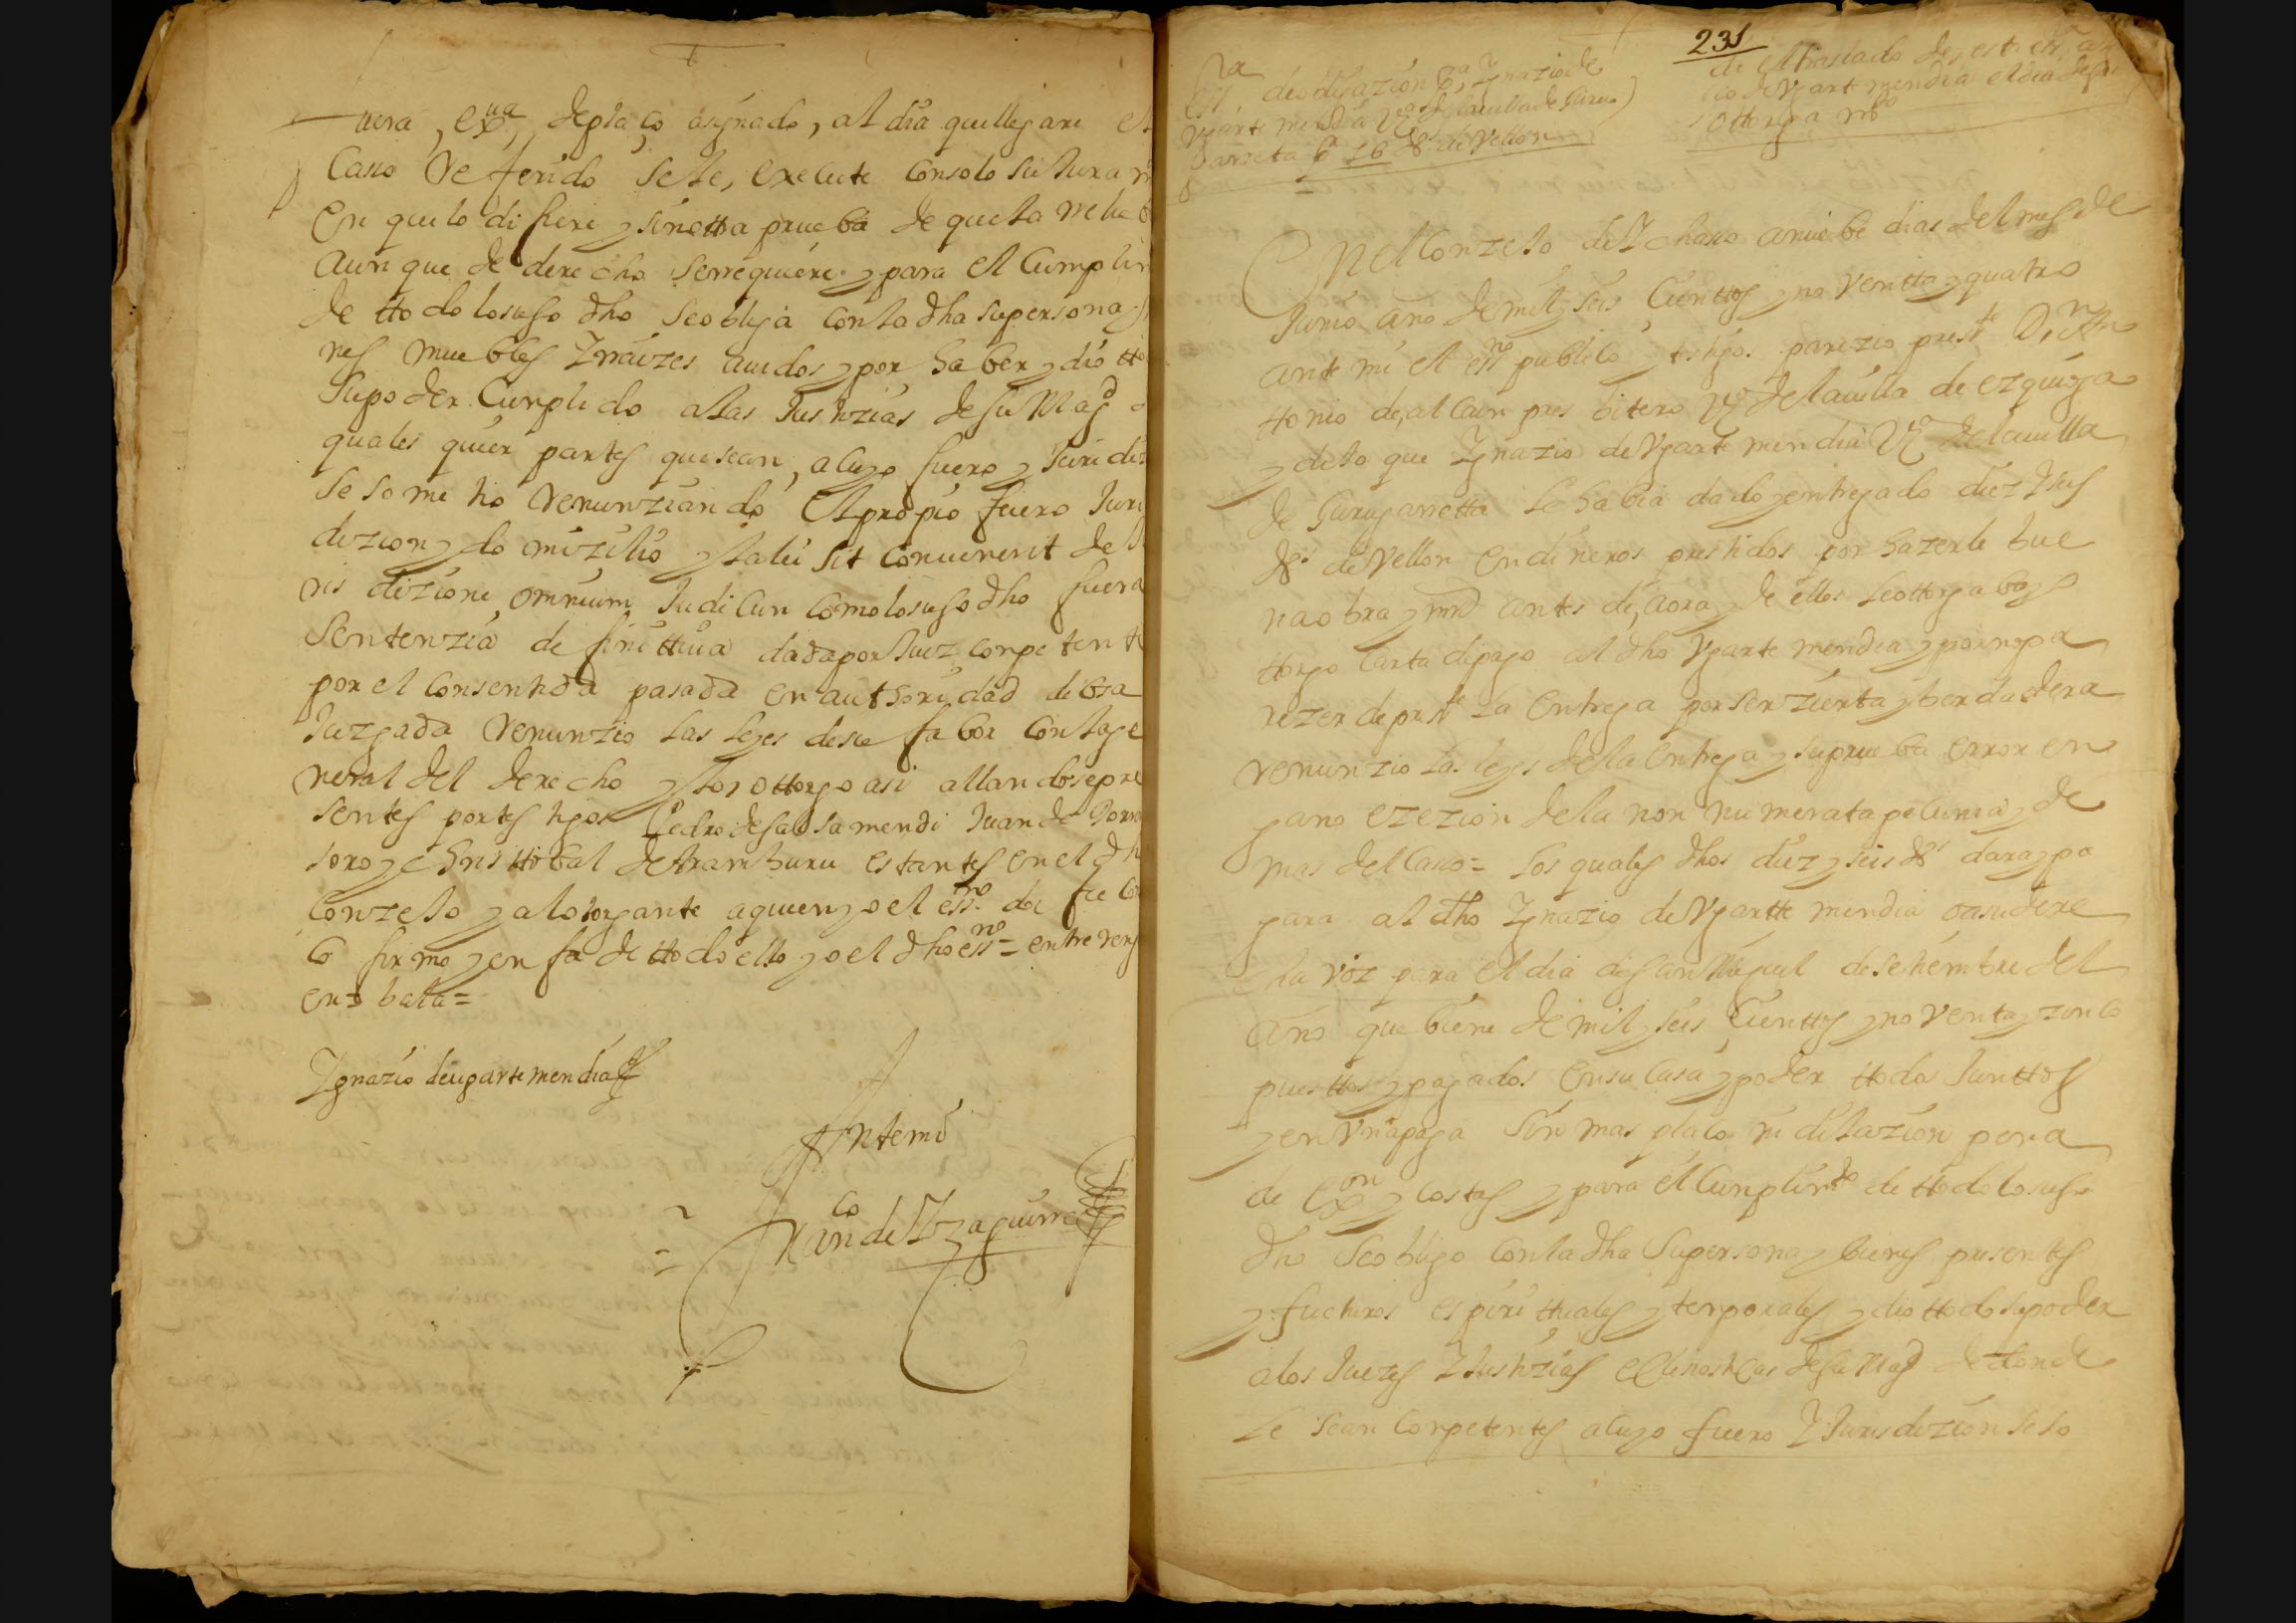 uera, exua deplaço asignado, al dia que llegare el
Casso Referido se le, execute con solo su Jura
en que lo difiere y sin otra prueba de que la relieba
aun que de derecho serrequiere. y para el Cumplim
de ttodo lo suso dho se obliga con la dha su persona y
nes muebles Y rraizes auidos y por haber y dio tto
Supoder Cumplido a las Justizias de su Magd
quales quier partes que sean, a cuyo fuero y Juridi
se sometio Renunziando el propio fuero Juri
dizion y domizilio y la lei sit conuenerit de Ju
ris dizione omnium Judicun como lo suso dho fuera
Sentenzia definittiua dada por Juez conpetente
por el consentida pasada en authoridad de cosa
Juzgada Renunzio las leyes de su fabor con la ge
neral del derecho y lo ottorgo asi allandose pre
sentes por testigos Pedro de Salsamendi Juan de
soro y Christtobal de Aramburu estantes en el dh
Conzejo y al otorgante a quien yo el essno doi fee co
co firmo y en fe de ttodo ello yo el dho essno = entre reng
en = bala =
Ygnazio de ugartemendia
Antemi
Franco de Yzaguirre
231
Essra de obligazion pa Ygnazio de
Vgarte mendia vo de la villa de Guru
garreta pa 16 ds de Vellon
di el traslado de esta essra a
zio de Vgarte mendia el dia de su
ottorga mto
En el Conzejo de Ychasso a nuebe dias del mes de
Junio año de mil y seis Cienttos y no Ventta y quatro
ante mi el essno publico y testigos. parezio preste Dn An
ttonio de, alcain pres bitero Vo de la villa de ezquioga
y dijo que Ygnazio de Vgarte mendia Vo de la villa
de Gurugarretta le habia dado y entregado diez Y seis
ds de Vellon en dineros prestidos por hazerle bue
na obra y mrd antes de, aora y de ellos le ottorgaba y o
ttorgo Carta de pago al dho Vgarte mendia y por no pa
rezer de preste la entrega por ser zierta y berdadera
renunzio las leyes de la entrega y su prueba error en
gano ezezion de la non numerata pecunia y de
mas del Caso = los quales dhos diez y seis ds dara y pa
gara al dho Ygnazio de Vgartte mendia o a su dere
cha voz para el dia de San Miguel de setiembre del
año que biene de mil y seis Cienttos y no venta y zinco
puesttos y pagados en su Casa y poder ttodos Junttos
y en Vna paga sin mas plaço ni dilazion pena
de exon y costas y para el Cunplimto de ttodo lo suso
dho se obligo con la dha Su persona y bienes presentes
y fucturos espirittuales y tenporales y dio ttodo su poder
a los Juezes Y Justizias ecclesiasticas de su Magd de donde
le sean conpetentes a cuyo fuero Y Jurisdizion se so